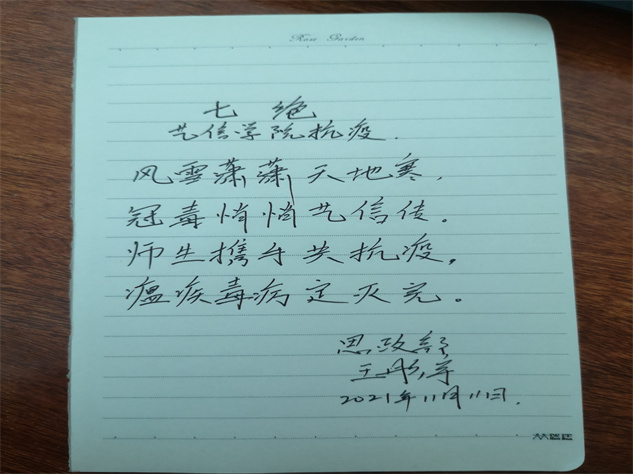 Rose Garden
七 绝
艺信学院抗疫.
风雪萧萧天地寒，
冠毒悄悄艺信传。
师生携手共抗疫，
瘟疾毒病定灭完。
思政部
2021年11月11日.